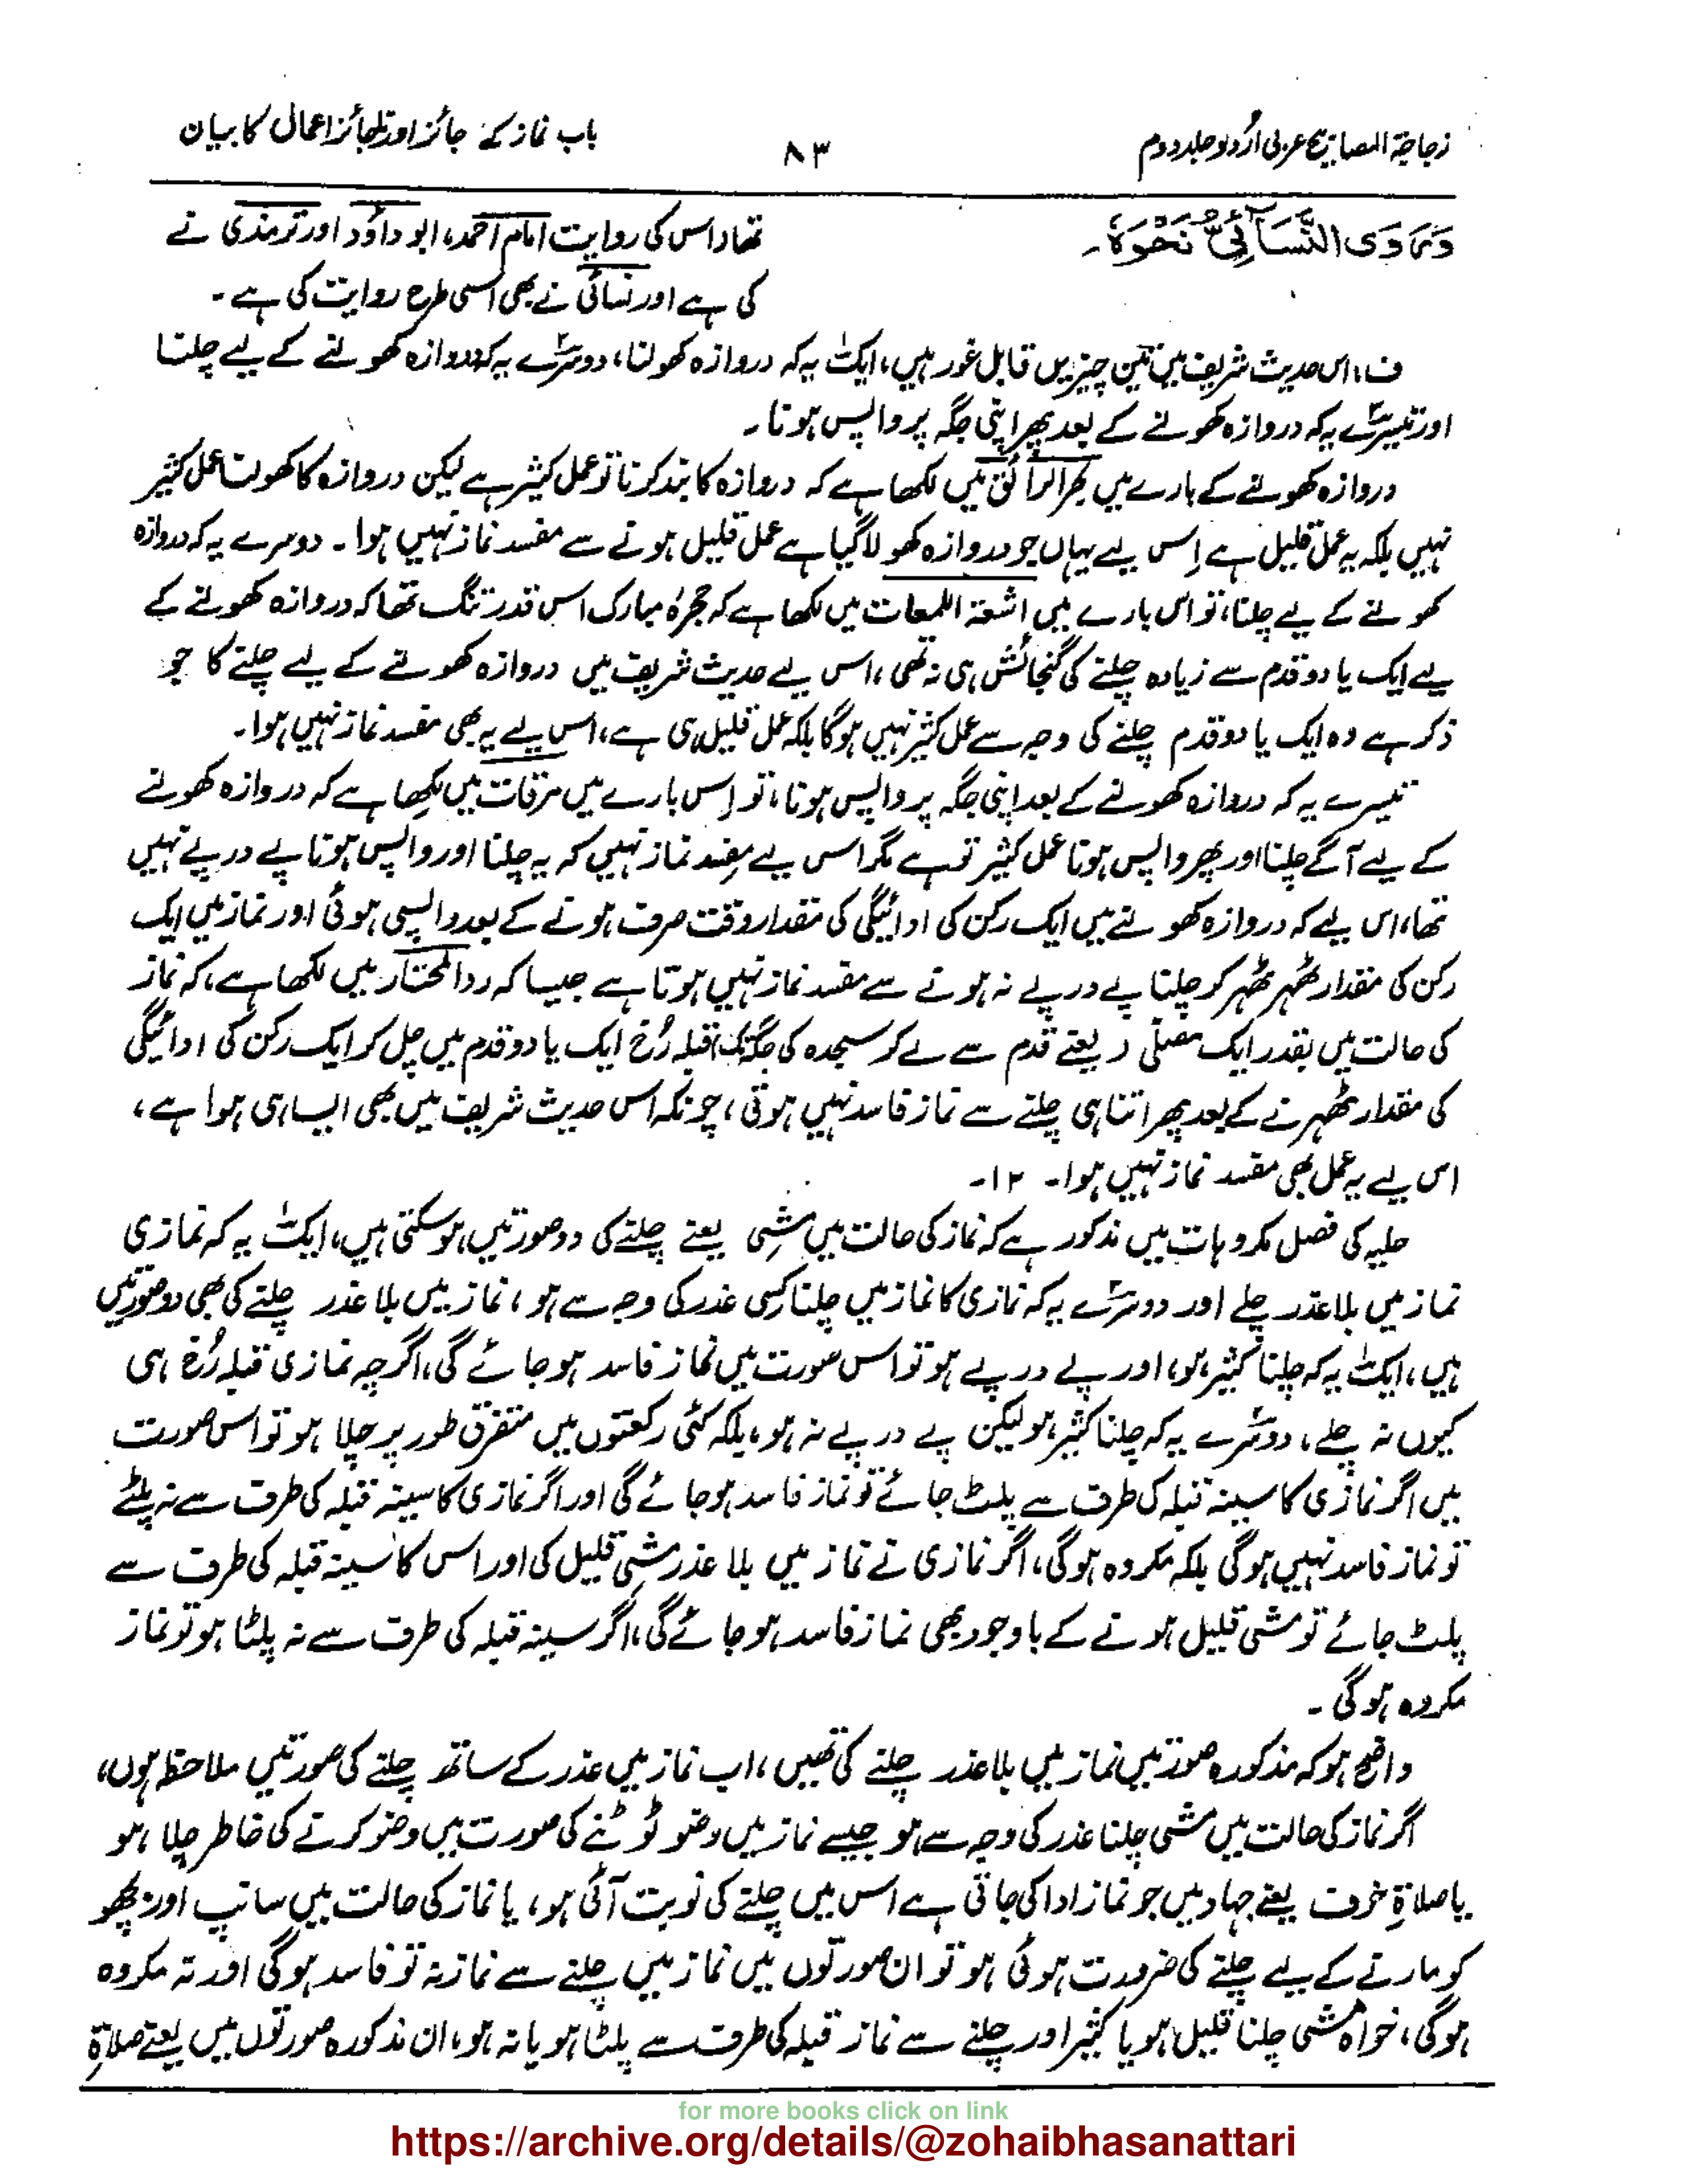 زجاجۃ المصابیح عربی اُردو جلد دوم
۸۳
باب نماز کے جائز اور ناجائز اعمال کا بیان
وَرَوَى النَّسَآئِيُّ نَحْوَهٗ۔
تھا۔ اس کی روایت امام احمد، ابو داؤد اور ترمذی نے
کی ہے اور نسائی نے بھی اسی طرح روایت کی ہے۔
ف: اس حدیث شریف میں تین چیزیں قابل غور ہیں، ایک یہ کہ دروازہ کھولنا، دوسرے یہ کہ دروازہ کھولنے کے لیے چلنا
اور تیسرے یہ کہ دروازہ کھولنے کے بعد پھر اپنی جگہ پر واپس ہونا۔
دروازہ کھولنے کے بارے میں بحر الرائق میں لکھا ہے کہ دروازہ کا بند کرنا تو عمل کثیر ہے لیکن دروازہ کا کھولنا عمل کثیر
نہیں بلکہ یہ عمل قلیل ہے اِس لیے یہاں جو دروازہ کھولا گیا ہے عمل قلیل ہونے سے مفسد نماز نہیں ہوا۔ دوسرے یہ کہ دروازہ
کھولنے کے لیے چلنا، تو اس بارے میں اشعۃ اللمعات میں لکھا ہے کہ حجرۂ مبارک اس قدر تنگ تھا کہ دروازہ کھولنے کے
لیے ایک یا دو قدم سے زیادہ چلنے کی گنجائش ہی نہ تھی، اس لیے حدیث شریف میں دروازہ کھولنے کے لیے چلنے کا جو
ذکر ہے وہ ایک یا دو قدم چلنے کی وجہ سے عمل کثیر نہیں ہوگا بلکہ عمل قلیل ہی ہے، اس لیے یہ بھی مفسد نماز نہیں ہوا۔
تیسرے یہ کہ دروازہ کھولنے کے بعد اپنی جگہ پر واپس ہونا، تو اِس بارے میں مرقات میں لکھا ہے کہ دروازہ کھولنے
کے لیے آگے چلنا اور پھر واپس ہونا عمل کثیر تو ہے مگر اس لیے مفسد نماز نہیں کہ یہ چلنا اور واپس ہونا پے در پے نہیں
تھا، اس لیے کہ دروازہ کھولنے میں ایک رکن کی ادائیگی کی مقدار وقت صرف ہونے کے بعد واپسی ہوئی اور نماز میں ایک
رکن کی مقدار ٹھہر ٹھہر کر چلنا پے در پے نہ ہونے سے مفسد نماز نہیں ہوتا ہے جیسا کہ ردالمحتار میں لکھا ہے، کہ نماز
کی حالت میں بقدر ایک مصلّٰی (یعنے قدم سے لے کر سجدہ کی جگہ تک) قبلہ رُخ ایک یا دو قدم میں چل کر ایک رکن کی ادائیگی
کی مقدار ٹھہرنے کے بعد پھر اتنا ہی چلنے سے نماز فاسد نہیں ہوتی، چونکہ اس حدیث شریف میں بھی ایسا ہی ہوا ہے،
اس لیے یہ عمل بھی مفسد نماز نہیں ہوا۔ ۱۲۔
حلیہ کی فصل مکروہات میں مذکور ہے کہ نماز کی حالت میں مشِی یعنے چلنے کی دو صورتیں ہو سکتی ہیں، ایک یہ کہ نمازی
نماز میں بلا عذر چلے اور دوسرے یہ کہ نمازی کا نماز میں چلنا کسی عذر کی وجہ سے ہو، نماز میں بلا عذر چلنے کی بھی دو صورتیں
ہیں، ایک یہ کہ چلنا کثیر ہو، اور پے در پے ہو تو اس صورت میں نماز فاسد ہو جائے گی، اگرچہ نمازی قبلہ رُخ ہی
کیوں نہ چلے، دوسرے یہ کہ چلنا کثیر ہو لیکن پے در پے نہ ہو، بلکہ کئی رکعتوں میں متفرق طور پر چلا ہو تو اس صورت
میں اگر نمازی کا سینہ قبلہ کی طرف سے پلٹ جائے تو نماز فاسد ہو جائے گی اور اگر نمازی کا سینہ قبلہ کی طرف سے نہ پلٹے
تو نماز فاسد نہیں ہوگی بلکہ مکروہ ہوگی، اگر نمازی نے نماز میں بلا عذر مشِی قلیل کی اور اس کا سینہ قبلہ کی طرف سے
پلٹ جائے تو مشی قلیل ہونے کے باوجود بھی نماز فاسد ہو جائے گی، اگر سینہ قبلہ کی طرف سے نہ پلٹا ہو تو نماز
مکروہ ہوگی۔
واضح ہو کہ مذکورہ صورتیں نماز میں بلا عذر چلنے کی تھیں، اب نماز میں عذر کے ساتھ چلنے کی صورتیں ملاحظہ ہوں،
اگر نماز کی حالت میں مشی چلنا عذر کی وجہ سے ہو جیسے نماز میں وضو ٹوٹنے کی صورت میں وضو کرنے کی خاطر چلا ہو
یا صلاۃِ خوف یعنے جہاد میں جو نماز ادا کی جاتی ہے اس میں چلنے کی نوبت آئی ہو، یا نماز کی حالت میں سانپ اور بچھو
کو مارنے کے لیے چلنے کی ضرورت ہوئی ہو تو ان صورتوں میں نماز میں چلنے سے نماز نہ تو فاسد ہوگی اور نہ مکروہ
ہوگی، خواہ مشی چلنا قلیل ہو یا کثیر اور چلنے سے نماز قبلہ کی طرف سے پلٹا ہو یا نہ ہو، ان مذکورہ صورتوں میں یعنے صلاۃ
for more books click on link
https://archive.org/details/@zohaibhasanattari